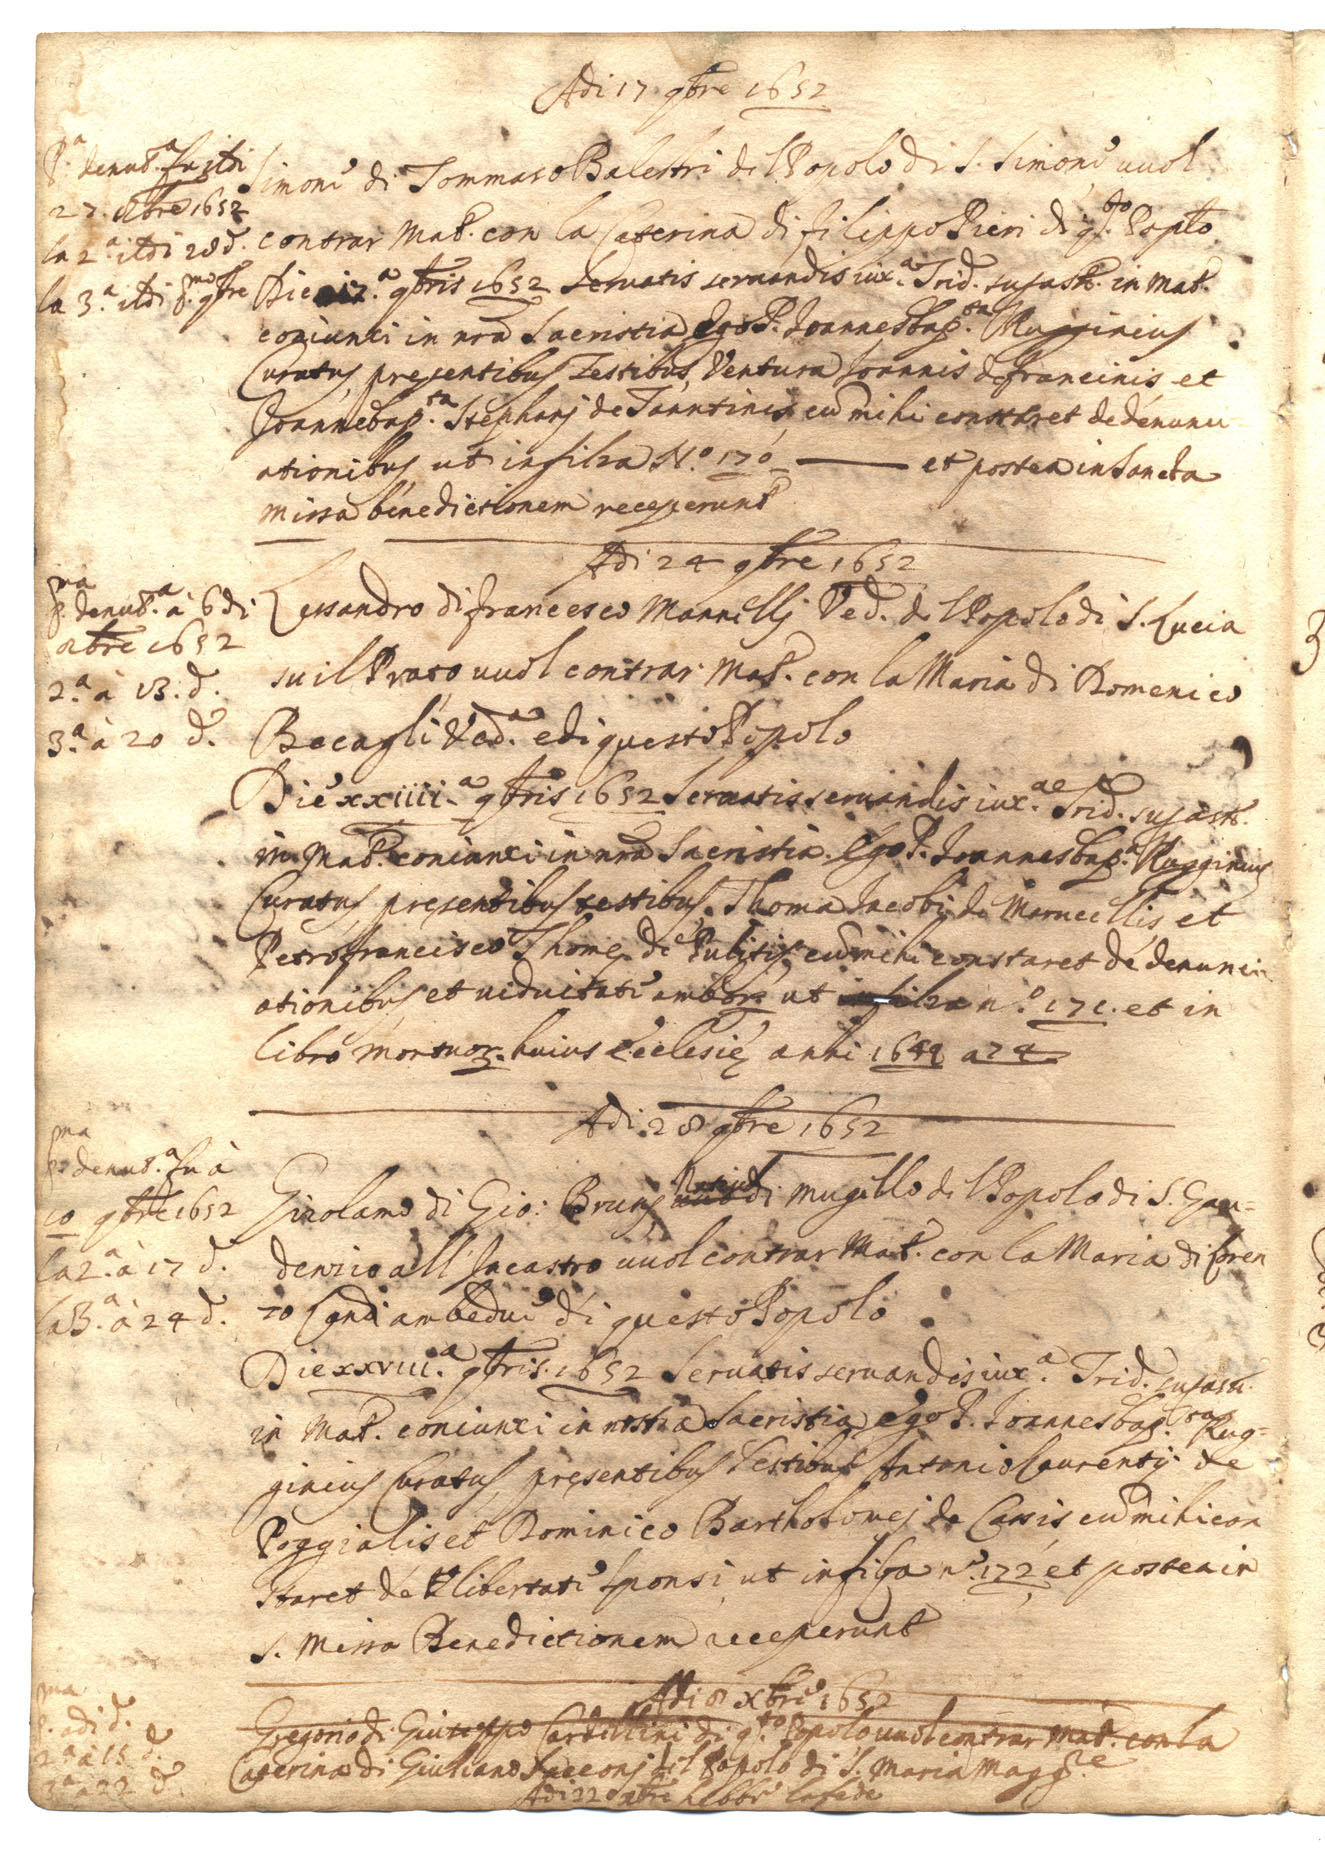 Adi 17 9bre 1652
P.a denut.a fu adi
27. 8bre 1652
la 2.a adi 28 d.
la 3.a adi p.mo 9bre
Simonè di Tommaso Balestri del Popolo di S. Simonè uuol
contrar Mat. con la Caterina di filippo Pieri di q.to Poplo
Die 17.a 9bris 1652 Seruatis seruandis iux.a Trid. in Mat.
coniunxi in nra Sacristia Ego P. Joannesbap.ta Rugginius
Curatus presentibus Testibus Ventura Joannis de francinis et
Joannebap.ta Stephanj de Tanntinis cu mihi constaret de denunti-
ationibus ut in filza N.o 170 et postea in Sancta
missa benedictionem receperunt
Adi 24 9bre 1652
p.ma denut.a à 6 di
9bre 1652
2.a à 13. d.
3.a à 20 d.
Lessandro di francesco Mannellj Ved. del Popolo di S. Lucia
sul Prato uuol contrar Mat. con la Maria di Domenico
Becagli Ved.a e di questo Popolo
Die xxiiii.a 9bris 1652 Seruatis seruandis iux.a Trid.
in Mat. coniunxi in nra Sacristia. Ego P. Joannesbap.a Rugginius
Curatus presentibus testibus. Thoma Jacobj de Marucellis et
Petrofrancisco Thomę de Pulitis cu mihi constaret de denunci
ationibus et uiduitate ambor. ut in filza n.o 171. et in
libro mortuor. huius Ecclesię anni a 74
Adi 28 9bre 1652
p.ma denut.a fu à
10 9bre 1652
la 2.a à 17 d.
la 3.a à 24 d.
Girolamo di Gio: Brunj di Mugello del Popolo di S. Gau-
denzio all' uuol contrar Mat. con la Maria di Loren
zo ambedue di questo Popolo
Die xxviii.a 9bris. 1652 Seruatis seruandis iux.a Trid.
in Mat. coniunxi in nostra Sacristia Ego P. Joannesbap.ta Rug-
ginius Curatus presentibus testibus Antonio Laurentij de
Poggialis et Dominico Bartholomej de Carsis cu mihi con
staret de libertate sponsi, ut in filza n.o 172 et postea in
S. Messa Benedictionem receperunt
Adi 8 xbre 1652
p.ma adi d.
2.a à 15 d.
3.a à 22 d.
Gregorio di Giuseppe Cardellini di q.to Popolo uuol contrar Mat. con la
Caterina di Giuliano del Popolo di S. Maria Magg.re
Adi 22 hebbe la fede